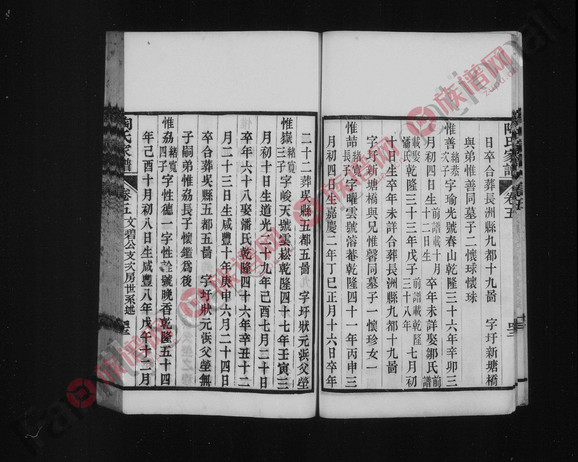 日卒合葬長洲縣九都十九啚 字圩新塘橋
與弟惟善同墓子二懷球懷珠
惟善 緒泰次子 字瑜光號春山乾隆三十六年辛卯三
月初四日生 卒年未詳娶鄒氏
潘氏乾隆三十三年戊子三十八年七月初
十日生卒年未詳合葬長洲縣九都十九啚
字圩新塘橋與兄惟馨同墓子一懷珍女一
惟喆 緒寬長子 字曜雲號濬菴乾隆四十一年丙申三
月初四日生嘉慶二年丁巳正月十六日卒年
二十二葬吳縣五都五啚 字圩狀元浜父塋
惟嶽 緒寬三子 字峻天號雲崧乾隆四十七年壬寅三
月初十日生道光二十九年己酉七月二十日
卒年六十八娶潘氏乾隆四十六年辛丑十二
月二十三日生咸豐十年庚申六月二十四日
卒合葬吳縣五都五啚 字圩狀元浜父塋無
子嗣弟惟劦長子懷鑑為後
惟劦 緒寬四子 字性德一字性詮號晚香乾隆五十四
年己酉十月初八日生咸豐八年戊午十二月
陶氏家譜 卷五 文碧公支次房世系述
陶氏家譜 卷五
族譜网